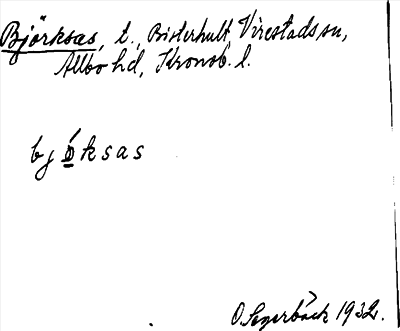 Björksas, t., Bisterhult, Virestads sn,
Allbo hd, Kronob. l.
bjö́ksas
O Segerbäck 1932.